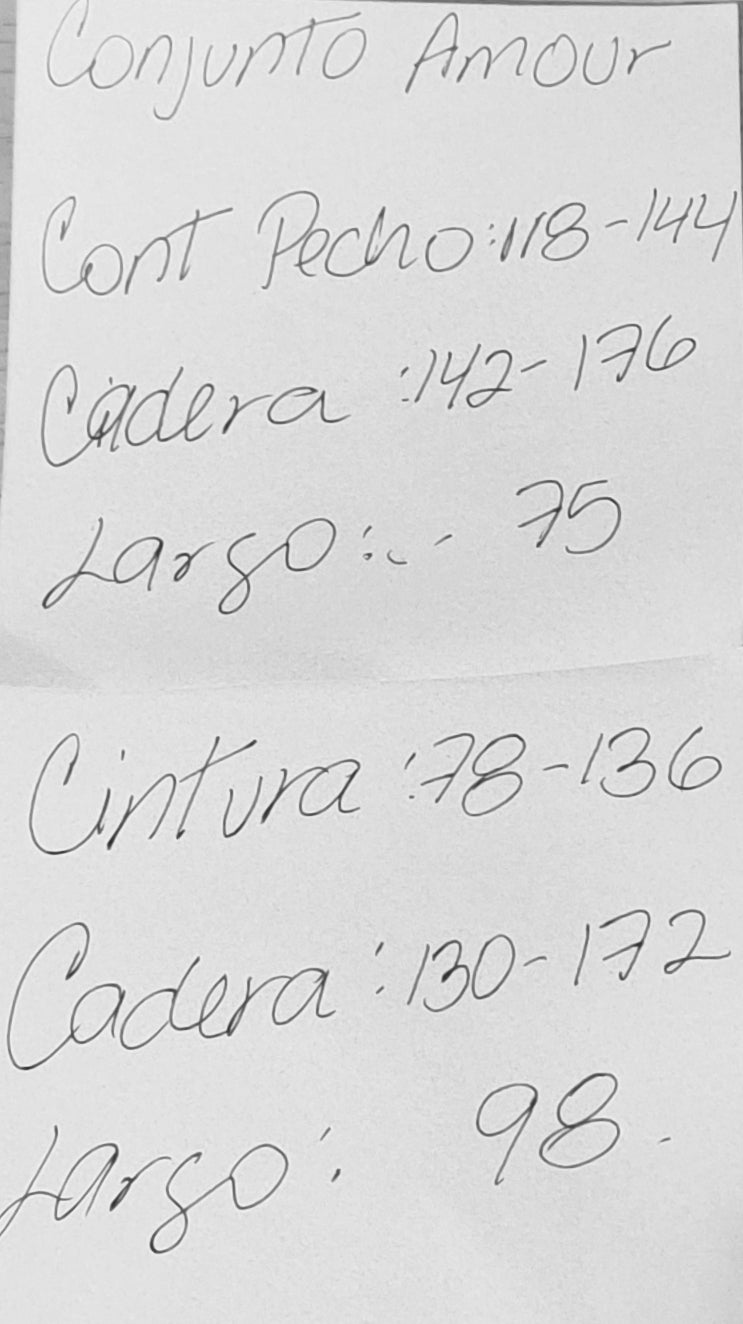 Conjunto Amour
Cont Pecho:118-144
Cadera :142-176
Largo:.- 75
Cintura :78-136
Cadera : 130-172
Largo: 98.